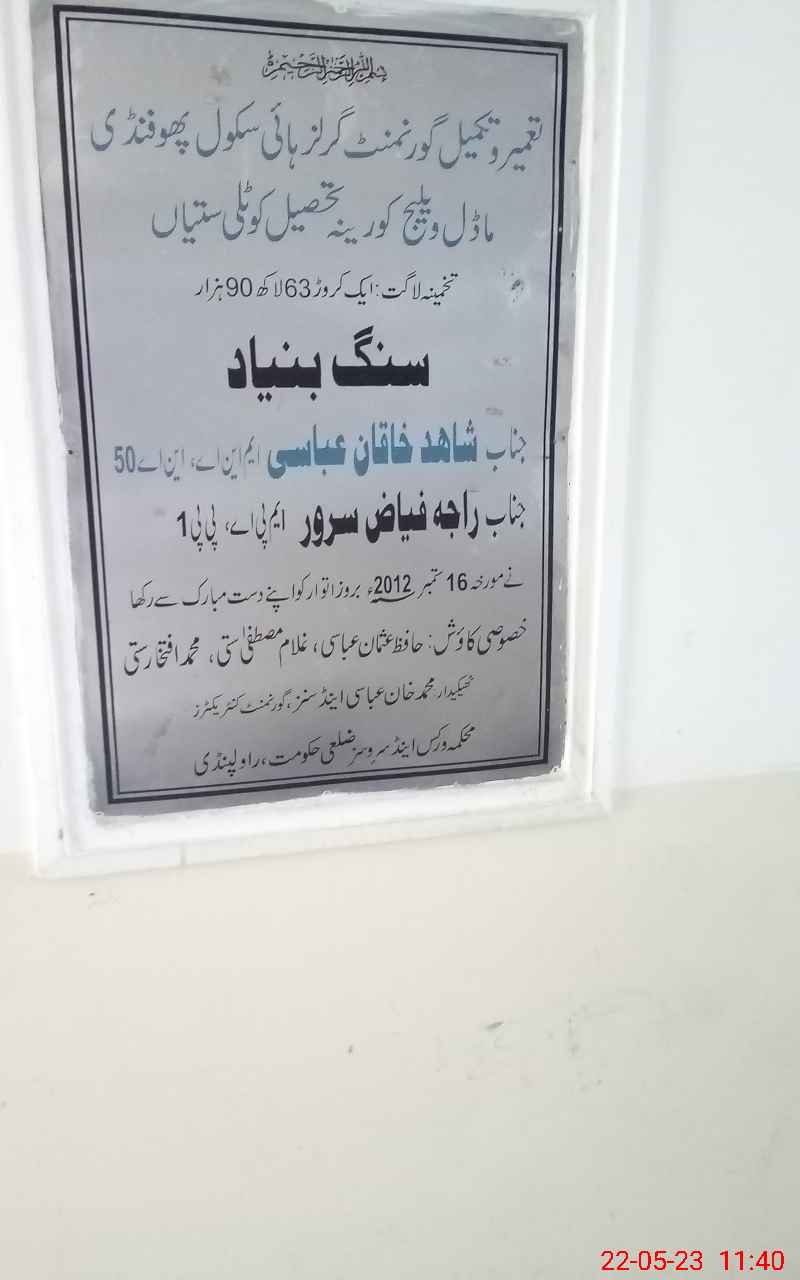 بسم اللہ الرحمن الرحیم
تعمیر و تکمیل گورنمنٹ گرلز ہائی سکول پھوفنڈی
ماڈل ویلیج کورینہ تحصیل کوٹلی ستیاں
تخمینہ لاگت: ایک کروڑ 63 لاکھ 90 ہزار
سنگ بنیاد
جناب شاھد خاقان عباسی ایم این اے، این اے 50
جناب راجہ فیاض سرور ایم پی اے، پی پی 1
نے مورخہ 16 ستمبر 2012ء بروز اتوار کو اپنے دست مبارک سے رکھا
خصوصی کاؤش: حافظ عثمان عباسی، غلام مصطفیٰ ستی، محمد افتخار ستی
ٹھیکیدار محمد خان عباسی اینڈ سنز، گورنمنٹ کنٹریکٹرز
محکمہ ورکس اینڈ سروسز ضلعی حکومت، راولپنڈی
22-05-23 11:40